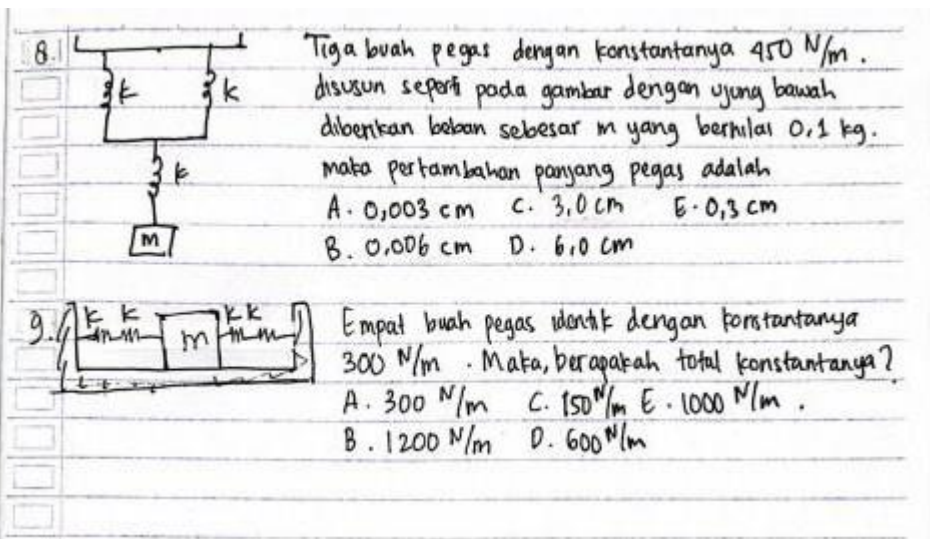 8.
k
k
k
m
Tiga buah pegas dengan konstantanya 450 N/m.
disusun seperti pada gambar dengan ujung bawah
diberikan beban sebesar m yang bernilai 0,1 kg.
maka pertambahan panjang pegas adalah
A. 0,003 cm C. 3,0 cm E. 0,3 cm
B. 0,006 cm D. 6,0 cm
9.
k k m k k
Empat buah pegas identik dengan konstantanya
300 N/m. Maka, berapakah total konstantanya?
A. 300 N/m C. 150 N/m E. 1000 N/m.
B. 1200 N/m D. 600 N/m